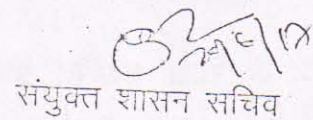 संयुक्त शासन सचिव